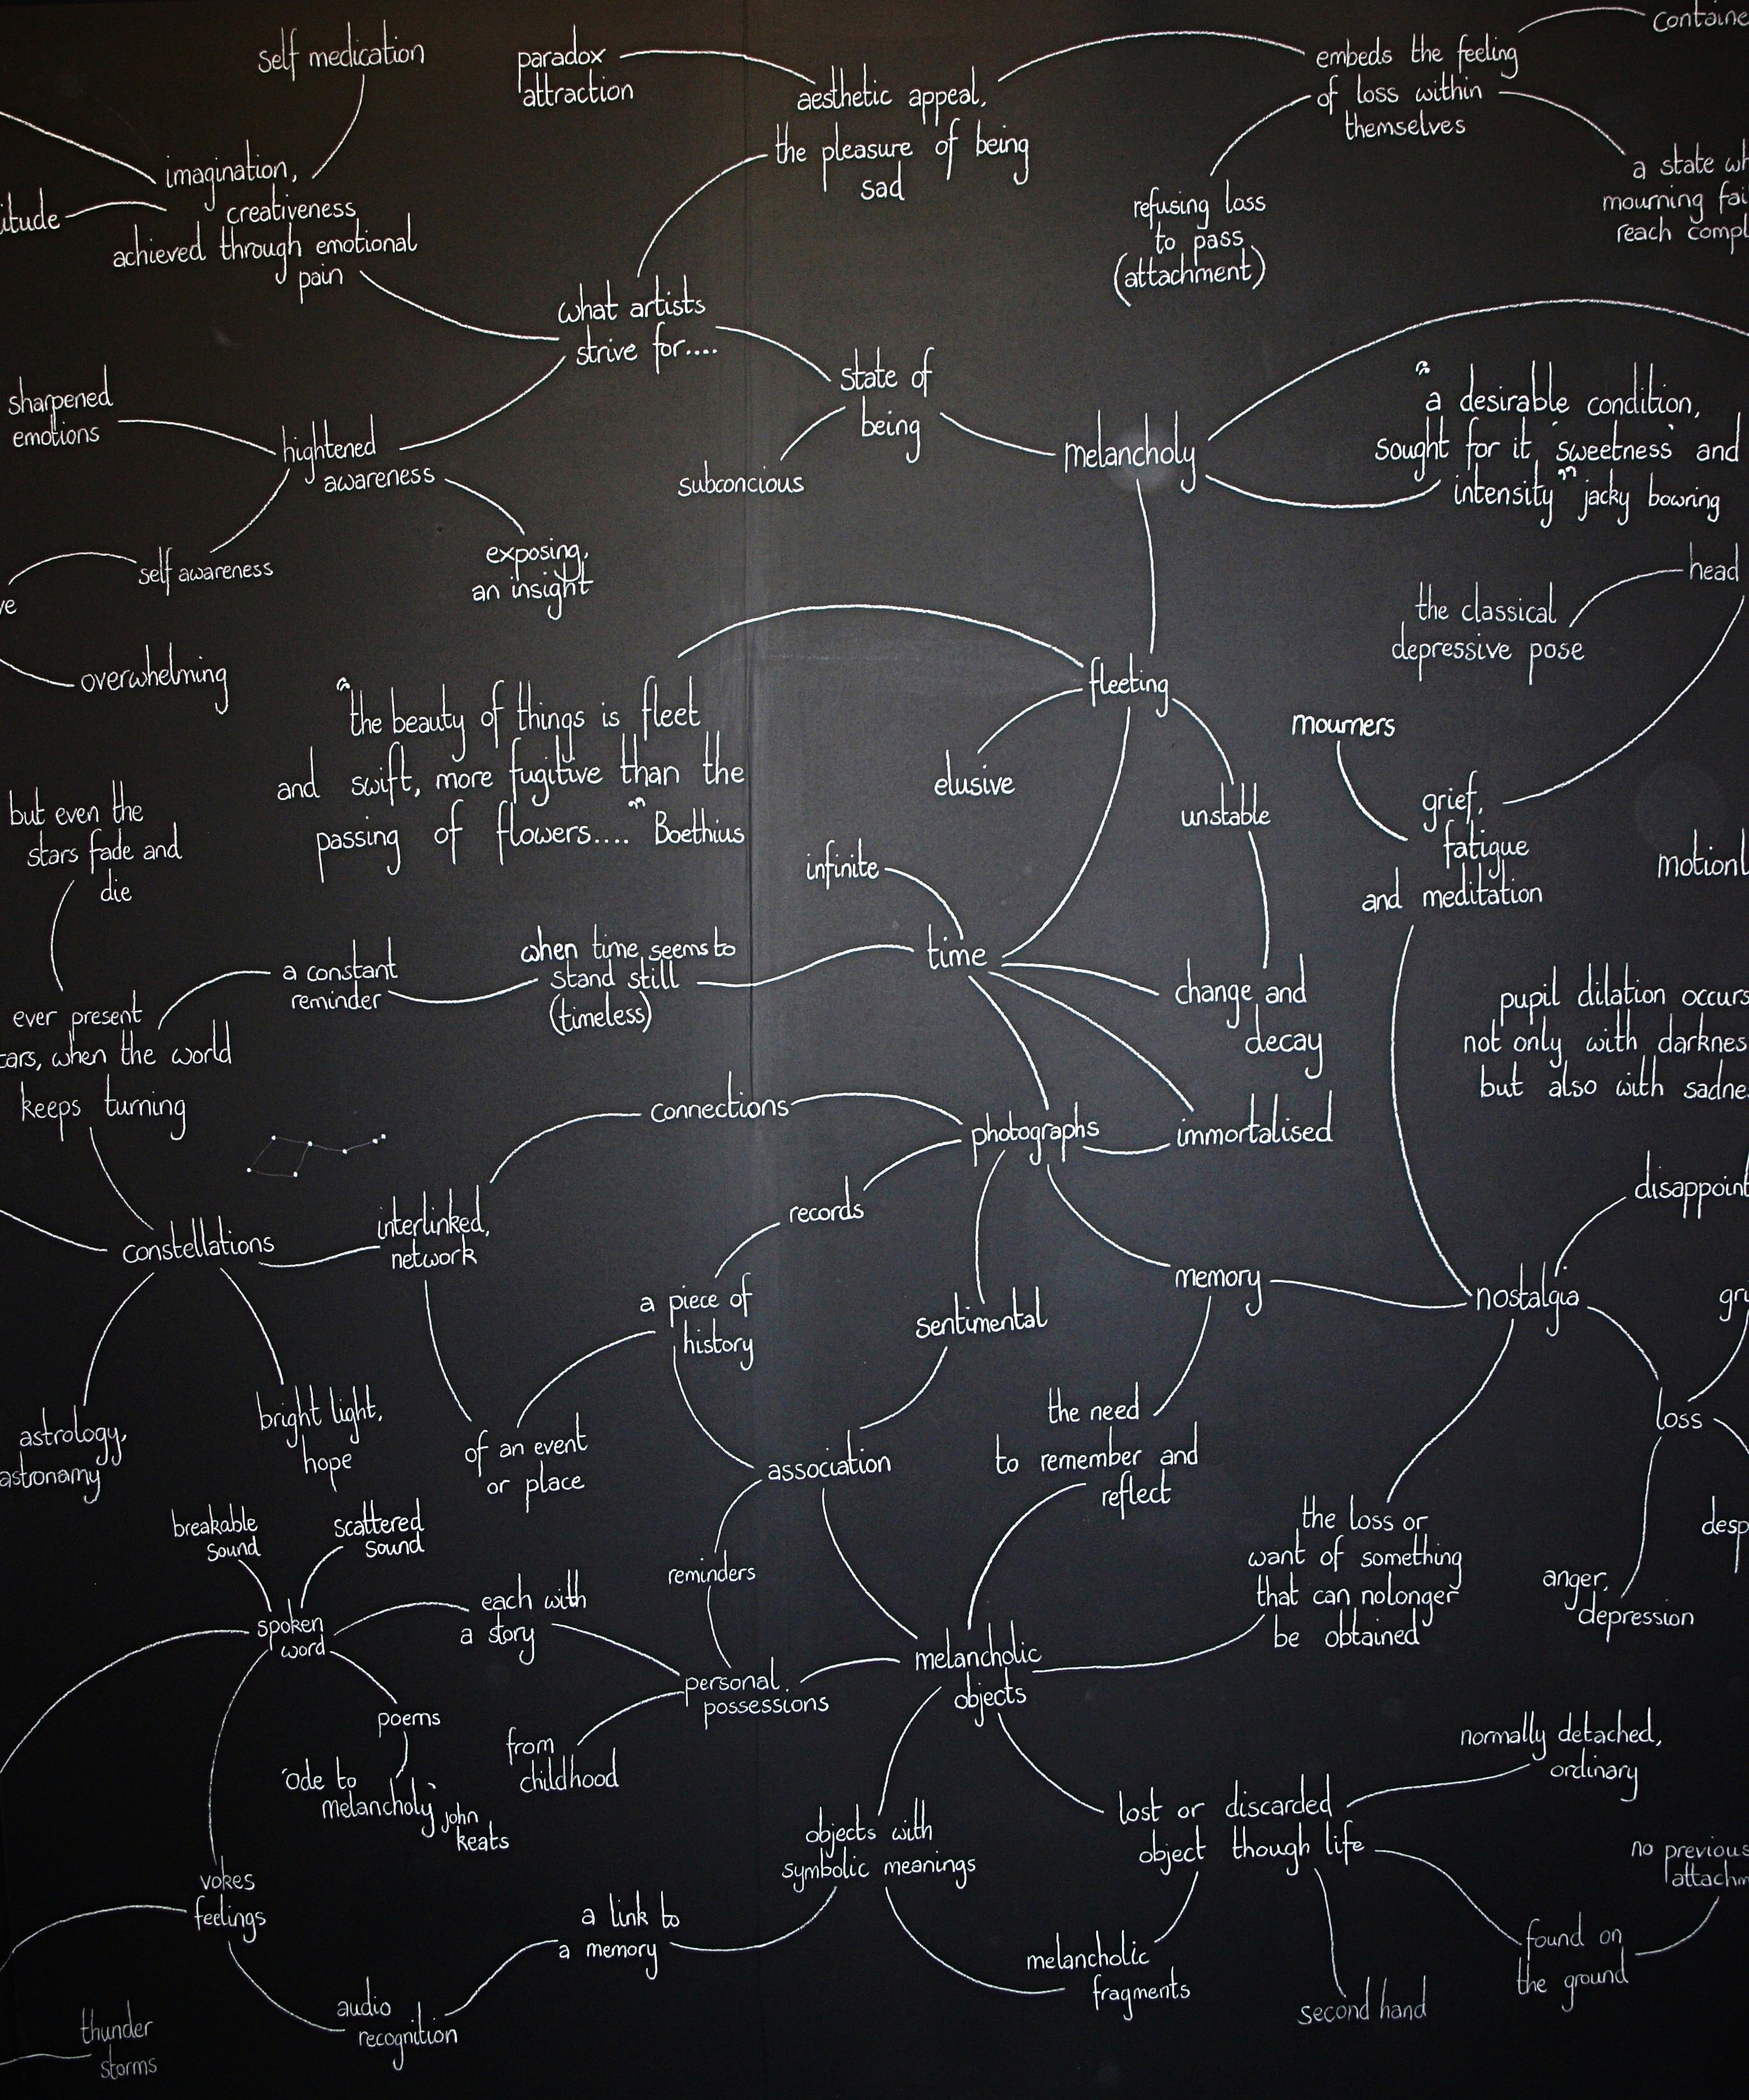 self medication
paradox
attraction
aesthetic appeal,
the pleasure of being
sad
embeds the feeling
of loss within
themselves
containe
a state wh
mourning fai
reach compl
refusing loss
to pass
(attachment)
imagination,
creativeness
achieved through emotional
pain
itude
what artists
strive for....
state of
being
subconcious
melancholy
“a desirable condition,
sought for it 'sweetness' and
intensity” jacky bowring
sharpened
emotions
hightened
awareness
self awareness
exposing,
an insight
ve
overwhelming
head
the classical
depressive pose
fleeting
“the beauty of things is fleet
and swift, more fugitive than the
passing of flowers....” Boethius
elusive
unstable
mourners
grief,
fatigue
and meditation
motionl
but even the
stars fade and
die
infinite
time
when time seems to
stand still
(timeless)
a constant
reminder
ever present
tars, when the world
keeps turning
change and
decay
pupil dilation occurs
not only with darknes
but also with sadne
connections
photographs
immortalised
records
disappoint
constellations
interlinked,
network
a piece of
history
sentimental
memory
nostalgia
gri
loss
astrology,
astronamy
bright light,
hope
of an event
or place
association
the need
to remember and
reflect
the loss or
want of something
that can nolonger
be obtained
desp
anger,
depression
breakable
sound
scattered
sound
reminders
spoken
word
each with
a story
personal
possessions
melancholic
objects
poems
'ode to
melancholy' john
keats
from
childhood
normally detached,
ordinary
lost or discarded
object though life
objects with
symbolic meanings
no previous
attachm
vokes
feelings
a link to
a memory
melancholic
fragments
found on
the ground
second hand
audio
recognition
thunder
storms